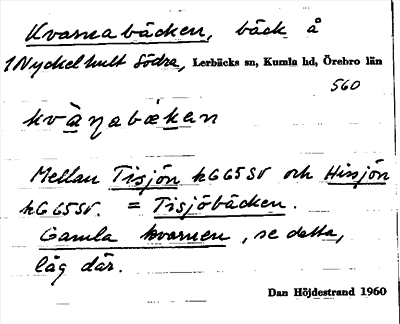 Kvarnabäcken, bäck å
1 Nyckelhult Södra, Lerbäcks sn, Kumla hd, Örebro län
560
kvànabäken
Mellan Tisjön hG65SV och Hissjön
hG65SV. = Tisjöbäcken.
Gamla kvarnen, se detta,
låg där.
Dan Höjdestrand 1960